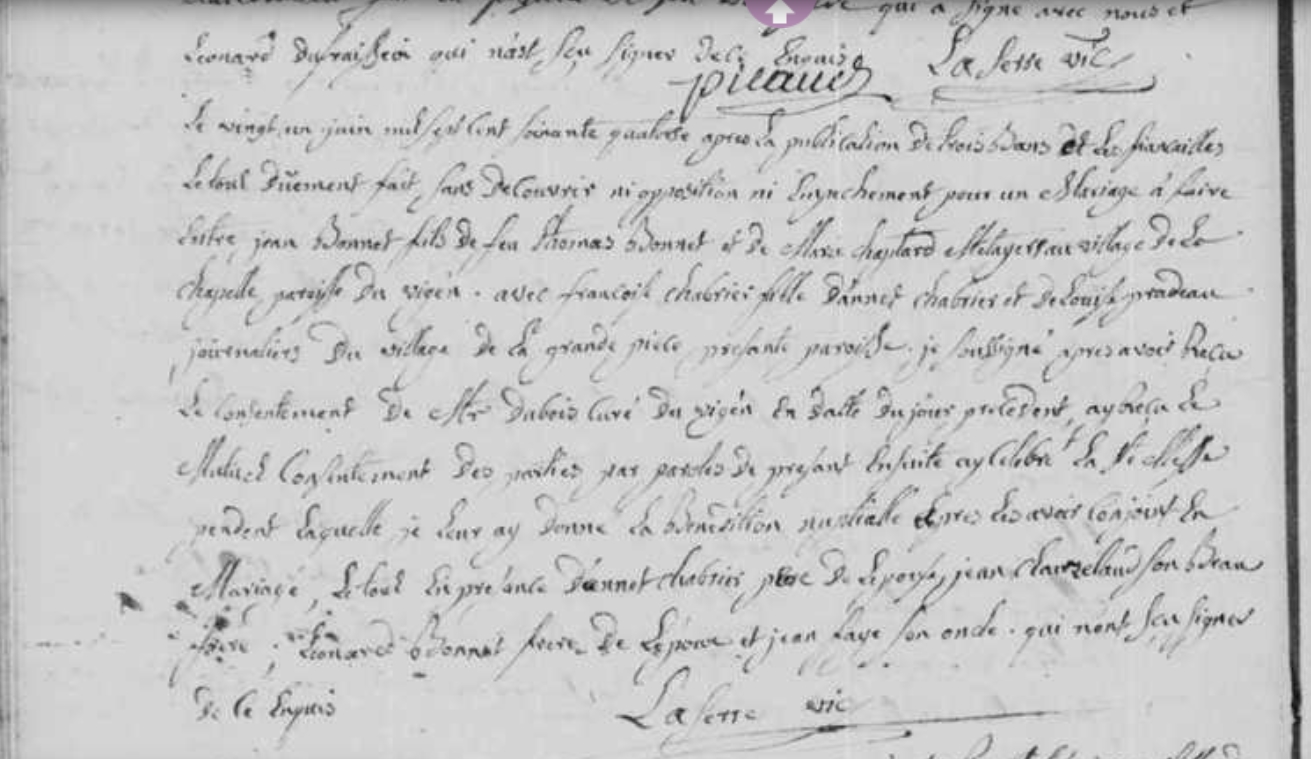 qui a signé avec nous et
Leonard dufraisseix qui n'ast sçu signer de ce Enquis
picaud La serre vic
Le vingt un juin mil sept cent soixante quatorse apres La publication de trois bans et Les fiancailles
Le tout düement fait, sans decouvrir ni opposition ni Empechement pour un Mariage à faire
Entre jean Bonnet fils de feu thomas Bonnet et de Marie chaptard Metayers au village de La
chapelle, paroisse du vigen. avec françoise chabrier fille d'annet chabrier et de Louise pradeau
journaliers du village de La grande piece presante paroisse. je soussigné apres avoir Reçu
Le consentement de Mr dubois Curé du vigen En datte du jour precedent, ay Reçu Le
Mutuel consentement des parties par paroles de presant Ensuite ay Celebré La Ste Messe
pendent Laquelle je Leur ay donné La Benediction nuptialle apres Les avoir conjoint En
Mariage, Le tout En presence d'annet chabrier pere de L'epouse, jean son Beau
frere, Leonard Bonnet frere de L'epoux et jean faye son oncle. qui n'ont sçu signer
de Ce Enquis La serre vic